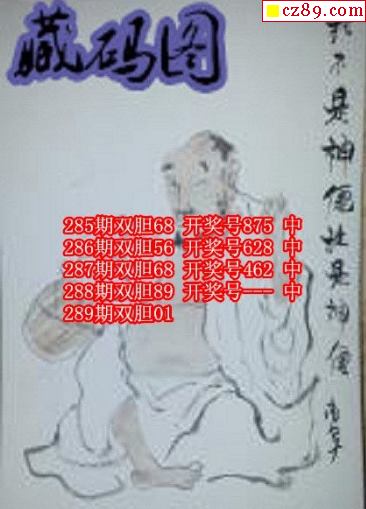 cz89.com
藏码图
我不是神仙胜是神仙
285期双胆68 开奖号875 中
286期双胆56 开奖号628 中
287期双胆68 开奖号462 中
288期双胆89 开奖号--- 中
289期双胆01